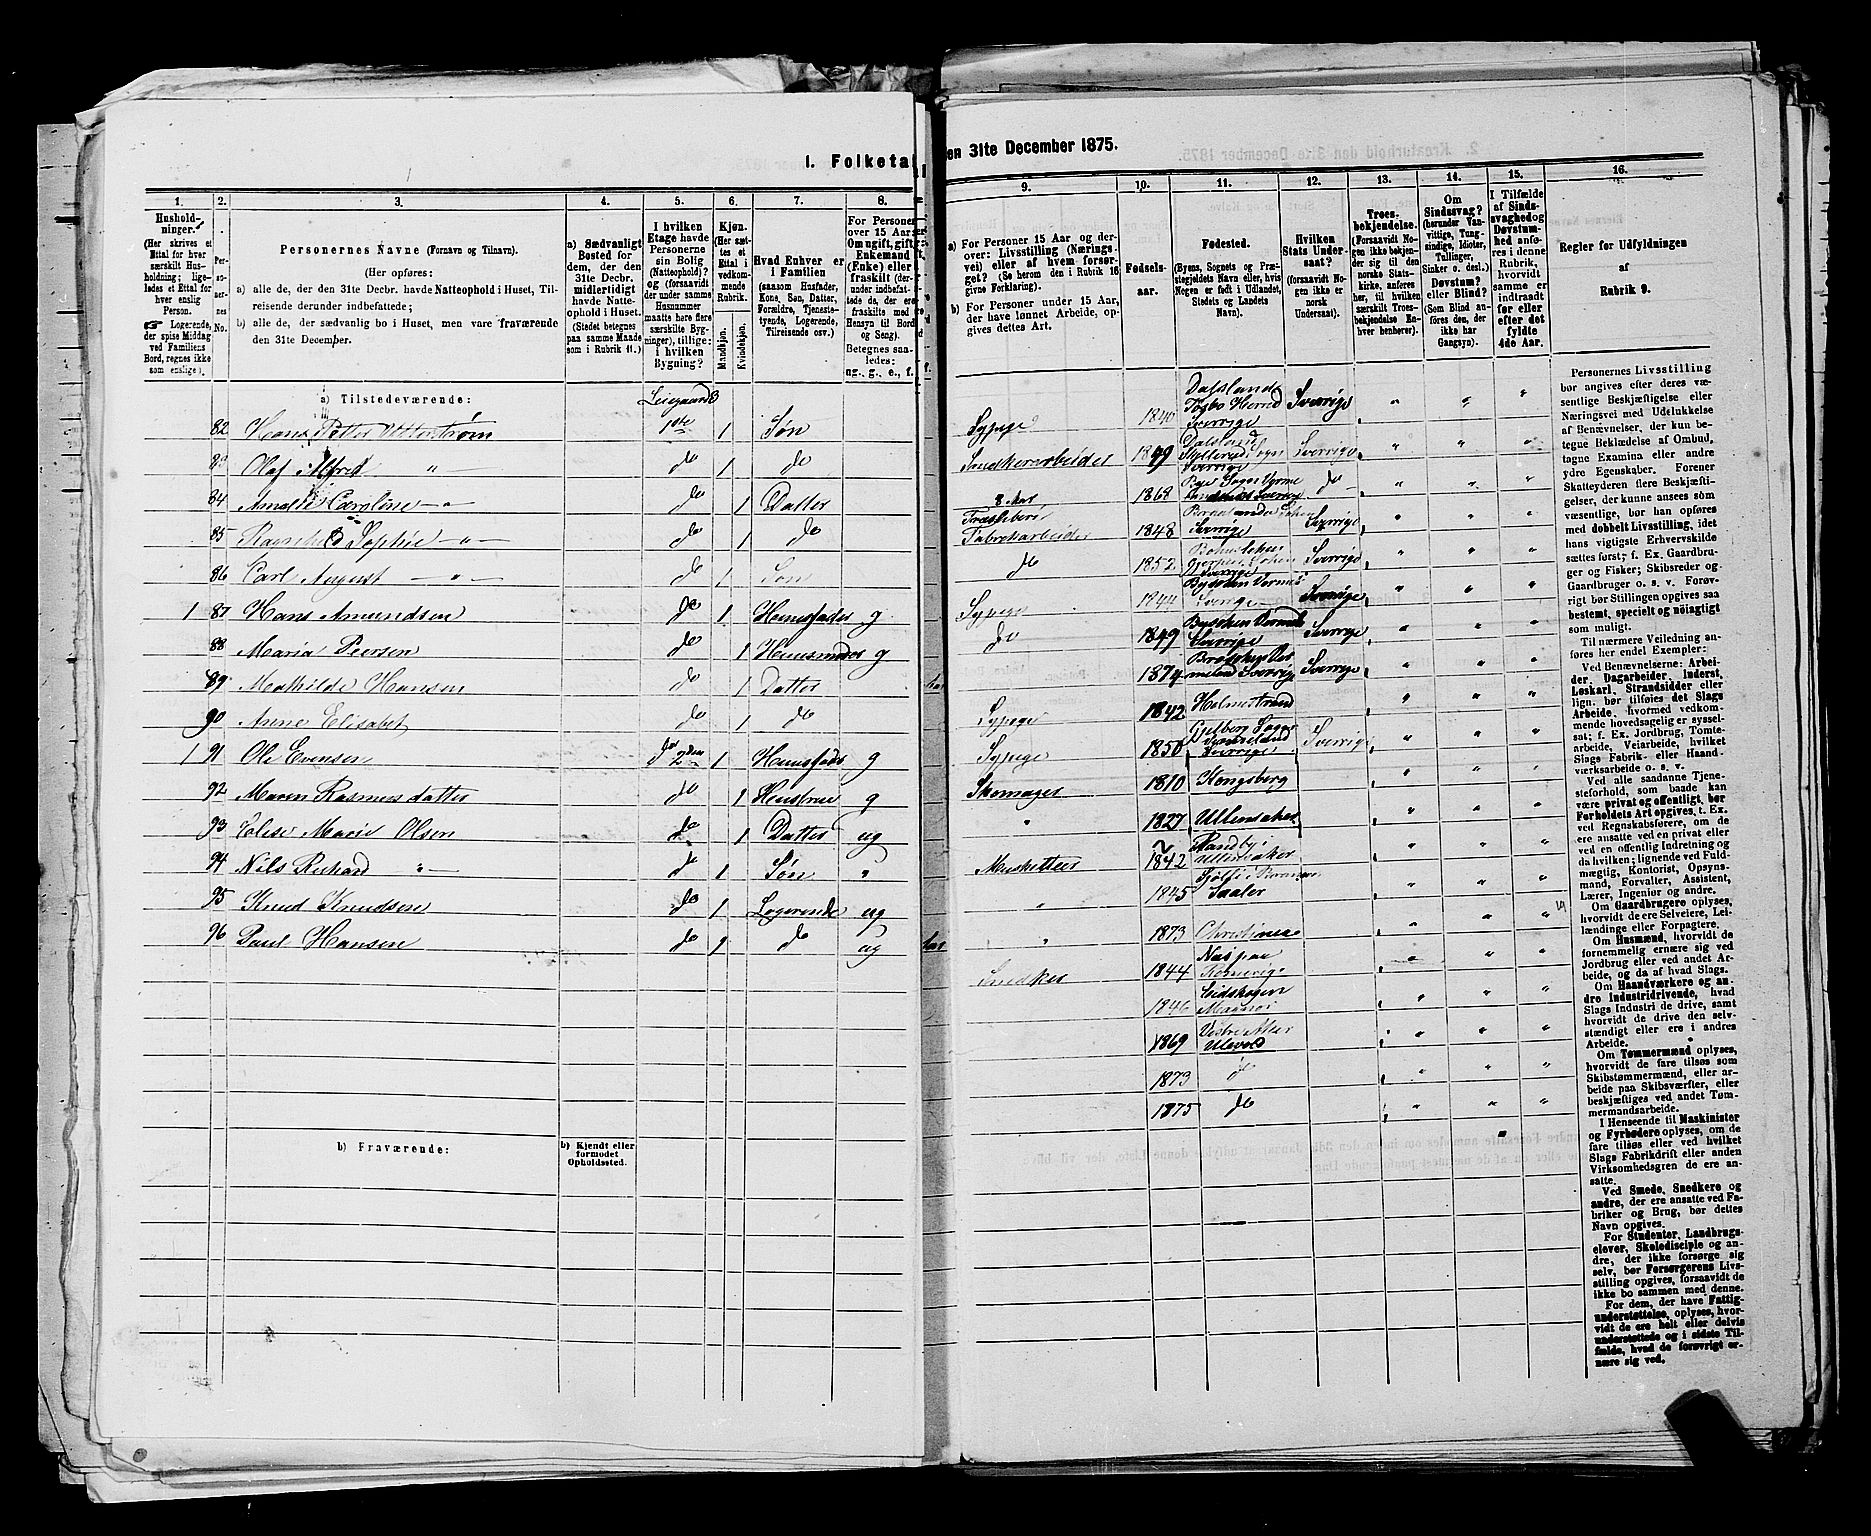 I. Folketal
1.
Hushold-
ninger.
(Her skrives et
Ettal for hver
særskilt Hus-
holdning; lige-
ledes et Ettal for
hver enslig
Person.
☞ Logerende,
der spise Middag
ved Familiens
Bord, regnes ikke
som enslige).
2.
Per-
so-
ner-
nes
No.
3.
Personernes Navne (Fornavn og Tilnavn).
(Her opføres:
a) alle de, der den 31te Decbr. havde Natteophold i Huset, Til-
reisende derunder indbefattede;
b) alle de, der sædvanlig bo i Huset, men vare fraværende
den 31te December.
4.
a) Sædvanligt
Bosted for
dem, der den
31te Decbr.
midlertidigt
havde Natte-
ophold i Huset.
(Stedet betegnes
paa samme Maade
som i Rubrik 11.)
5.
I hvilken
Etage havde
Personerne
sin Bolig
(Natteophold)?
og (forsaavidt
der under samme
Husnummer
maatte høre flere
særskilte Byg-
ninger), tillige:
i hvilken
Bygning?
6.
Kjøn.
(Her sæt-
tes et
Ettal i
vedkom-
mende
Rubrik.
Mandkjøn.
Kvindekjøn.
7.
Hvad Enhver er
i Familien
(saasom Husfader,
Kone, Søn, Datter,
Forældre, Tjeneste-
tyende, Logerende,
Tilreisende osv.)
8.
For Personer
over 15 Aar:
Om ugift, gift,
Enkemand
(Enke) eller
fraskilt (der-
under indbefat-
tede de, der ere
fraskilte med
Hensyn til Bord
og Seng).
Betegnes saa-
ledes:
ug., g., e., f.
a) Tilstedeværende:
Leiegaard
82 Hans Petter Utterstrøm 1ste 1 Søn
83 Olaf Alfred " do 1 do
84 Amalie Caroline " do 1 Datter
85 Ragnhild Sophie " do 1 do
86 Carl August " do 1 Søn
1 87 Hans Amundsen do 1 Huusfader g
88 Maria Peersen do 1 Huusmoder g
89 Mathilde Hansen do 1 Datter
90 Anne Elisabet do 1 do
1 91 Ole Evensen 2den 1 Huusfader g
92 Maren Rasmusdatter do 1 Hustrue g
93 Elise Marie Olsen do 1 Datter ug
94 Nils Richard " do 1 Søn "
95 Knud Knudsen do 1 Logerende ug
96 Paul Hansen do 1 do ug
b) Fraværende:
b) Kjendt eller
formodet
Opholdssted.
den 31te December 1875.
9.
a) For Personer 15 Aar og der-
over: Livsstilling (Nærings-
vei) eller af hvem forsør-
get? (Se herom den i Rubrik 16
givne Forklaring).
b) For Personer under 15 Aar,
der have lønnet Arbeide, op-
gives dettes Art.
10.
Fødsels-
aar.
11.
Fødested.
(Byens, Sognets og Præ-
stegjeldets Navn eller, hvis
Nogen er født i Udlandet,
Stedets og Landets
Navn).
12.
Hvilken
Stats Under-
saat?
(forsaavidt No-
gen ikke er
norsk
Undersaat).
13.
Troes-
bekjendelse.
(Forsaavidt No-
gen ikke bekjen-
der sig til den
norske Stats-
kirke, anføres
her, til hvilken
særskilt Troes-
bekjendelse En-
hver benhører).
14.
Om
Sindssvag?
(herunder Van-
vittige, Tung-
sindige, Idioter,
Tullinger,
Sinker o. desl.)
Døvstum?
eller Blind?
(Som Blind an-
føres den, der
ikke har
Gangsyn).
15.
I Tilfælde
af Sinds-
svaghed og
Døvstum-
hed anfø-
res i denne
Rubrik,
hvorvidt
samme er
indtraadt
før eller
efter det
fyldte
4de Aar.
16.
Regler for Udfyldningen
af
Rubrik 9.
Dalsland
Tosbo Herred
Sypige 1840 Sverrige Sverrige
Dalsland
Snedkerarbeider 1849 Sverrige Sverrige
1868 do
Fabrikarbeider 1848 Sverrige Sverrige
do 1852 Sverrige Sverrige
Sypige 1844 Sverrige Sverrige
do 1849 Sverrige Sverrige
1874 Sverrige Sverrige
Sypige 1842 Holmestrand
Sypige 1850 Sverrige Sverrige
Skomager 1810 Kongsberg
" 1827 Ullensaker
Musketteer 1842 Ullensaker
" 1845
" 1873 Christiania
Snedker 1844
1846 Eidskogen
Magnor
1869 Vestre Aker
Ulevold
1873 do
1875 do
Personernes Livsstilling
bør angives efter deres væ-
sentlige Beskjæftigelse eller
Næringsvei med Udelukkelse
af Benævnelser, der kun be-
tegne Beklædelse af Ombud,
tagne Examina eller andre
ydre Egenskaber. Forener
Skatteyderen flere Beskjæfti-
gelser, der kunne ansees som
væsentlige, bør han opføres
med dobbelt Livsstilling, idet
hans vigtigste Erhvervskilde
sættes først; f. Ex. Gaardbru-
ger og Fisker; Skibsreder og
Gaardbruger o. s. v. Forøv-
rigt bør Stillingen opgives saa
bestemt, specielt og nøiagtigt
som muligt.
Til nærmere Veiledning an-
føres her endel Exempler:
Ved Benævnelserne: Arbei-
der, Dagarbeider, Inderst,
Løskarl, Strandsidder eller
lign. bør tilføies det Slags
Arbeide, hvormed vedkom-
mende hovedsagelig er syssel-
sat; f. Ex. Jordbrug, Tomte-
arbeide, Veiarbeide, hvilket
Slags Fabrik- eller Haand-
værksarbeide o. s. v.
Ved alle saadanne Tjene-
steforhold, som baade kan
være privat og offentligt, bør
Forholdets Art opgives, t. Ex.
ved Regnskabsførere, om de
ere ansatte ved en privat eller
ved en offentlig Indretning og
da hvilken; lignende ved Fuld-
mægtig, Kontorist, Opsyns-
mand, Forvalter, Assistent,
Lærer, Ingeniør og andre.
Om Gaardbrugere oplyses,
hvorvidt de ere Selveiere, Lei-
lændinge eller Forpagtere.
Om Husmænd, hvorvidt de
fornemmelig ernære sig ved
Jordbrug eller ved andet Ar-
beide, og da af hvad Slags.
Om Haandværkere og an-
dre Industridrivende, hvad
Slags Industri de drive, samt
hvorvidt de drive den selv-
stændigt eller ere i andres
Arbeide.
Om Tømmermænd oplyses,
hvorvidt de fare tilsøs som
Skibstømmermænd, eller ar-
beide paa Skibsværfter, eller
beskjæftiges ved andet Tøm-
mermandsarbeide.
I Henseende til Maskinister
og Fyrbødere oplyses, om de
fare tilsøs eller ved hvilket
Slags Fabrikdrift eller anden
Virksomhedsgren de ere an-
satte.
Ved Smede, Snedkere og
andre, der ere ansatte ved Fa-
briker og Brug, bør dettes
Navn opgives.
For Studenter, Landbrugs-
elever, Skoledisciple og an-
dre, der ikke forsørge sig
selv, bør Forsørgerens Livs-
stilling opgives, forsaavidt de
ikke bo sammen med denne.
For dem, der have Fattig-
understøttelse, oplyses, hvor-
vidt de ere helt eller delvis
understøttede og i sidste Til-
fælde, hvad de forøvrigt er-
nære sig ved.